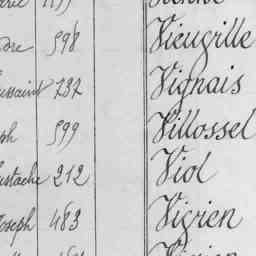 dre 598 Vieugville
ussaint 737 Vignais
ph 599 Villossel
ustache 212 Viol
Joseph 483 Vigrien